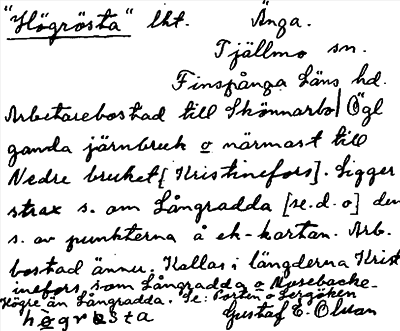 "Högrösta" lht. Änga.
Tjällmo sn.
Finspånga Läns hd.
Arbetarebostad till Skönnarbo/Ögl
ganda järnbruk o närmast till
Nedre bruket [Kristinefors]. Ligger
strax s. om Långradda [se.d.o] den
s. av punkterna å ek-kartan. Arb.
bostad ännu. Kallas i längderna Krist
inefors, som Långradda o Musebacke.
Högre än Långradda. Se: Porten o Sersjöken
högrösta Gustaf E. Olsson